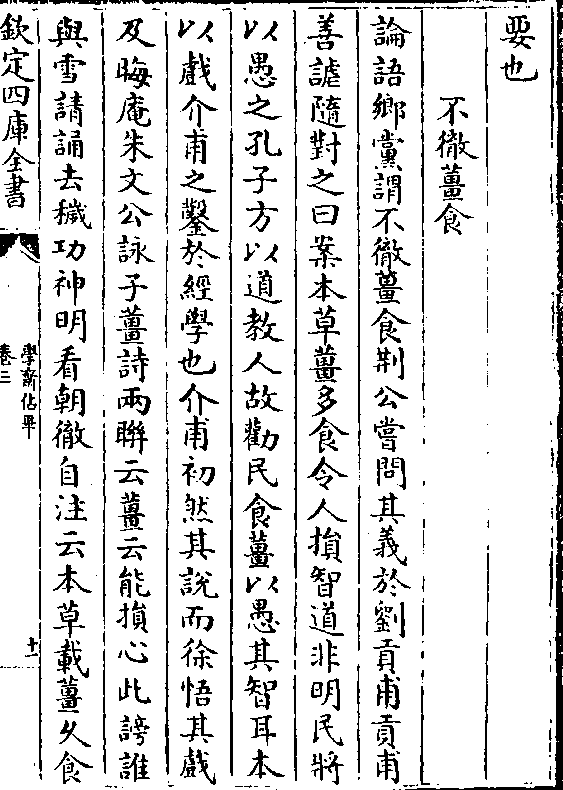 要也
不徹薑食
論語鄉黨謂不徹薑食荆公嘗問其義於劉貢甫貢甫
善謔隨對之曰案本草薑多食令人損智道非明民將
以愚之孔子方以道教人故勸民食薑以愚其智耳本
以戲介甫之鑿於經學也介甫初然其說而徐悟其戲
及晦庵朱文公詠子薑詩兩聨云薑云能損心此謗誰
與雪請誦去穢功神明看朝徹自注云本草載薑久食
欽定四庫全書
學齋佔畢
卷二
十